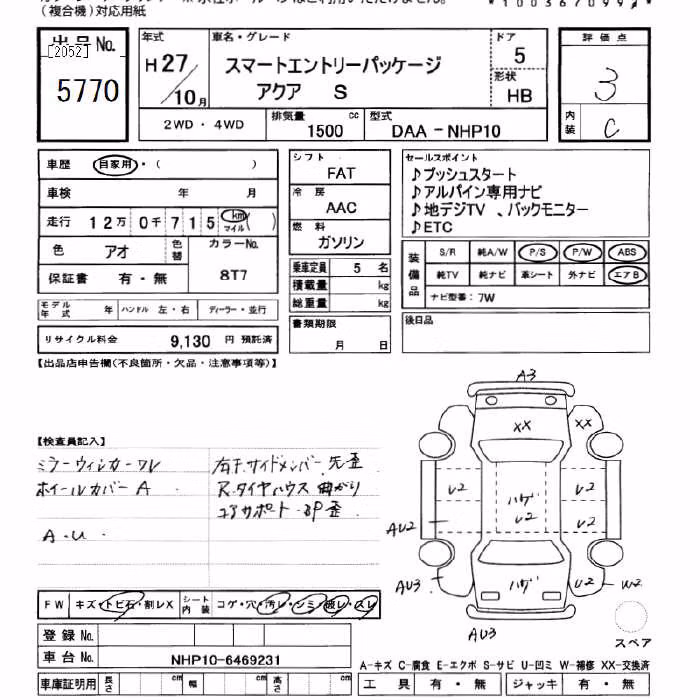 (複合機)対応用紙
* 1 0 0 3 6 7 0 9 9 *
出品No.
[2052]
5770
年式
H27/10月
車名・グレード
スマートエントリーパッケージ
アクア S
ドア
5
形状
HB
評価点
3
内装
C
2WD・4WD
排気量 1500 cc
型式 DAA-NHP10
車歴 自家用・( )
車検 年 月
走行 12万0千715 km マイル ( )
色 アオ 色替
カラーNo. 8T7
保証書 有・無
モデル年式 年 ハンドル 左・右 ディーラー・並行
リサイクル料金 9,130 円 預託済
シフト
FAT
冷房
AAC
燃料
ガソリン
乗車定員 5 名
積載量 kg
総重量 kg
書類期限
月 日
セールスポイント
♪プッシュスタート
♪アルパイン専用ナビ
♪地デジTV 、バックモニター
♪ETC
装備品
S/R 純A/W P/S P/W ABS
純TV 純ナビ 革シート 外ナビ エアB
ナビ型番: 7W
後日品
【出品店申告欄(不良箇所・欠品・注意事項等)】
【検査員記入】
ミラーウィンカーワレ
ホイールカバー A
A・U
右F.サイドメンバー 先歪
R.タイヤハウス 曲がり
コアサポート・BP歪
A3
XX
XX
U2
ハゲ
U2
U2
U2
AU2
AU3
ハゲ
U2
W2
AU3
スペア
FW キズ・トビ石・割レX
シート内装 コゲ・穴・汚レ・シミ・破レ・スレ
登録No.
車台No. NHP10-6469231
車庫証明用 長さ cm 幅 cm 高さ cm
A-キズ C-腐食 E-エクボ S-サビ U-凹ミ W-補修 XX-交換済
工具 有・無 ジャッキ 有・無